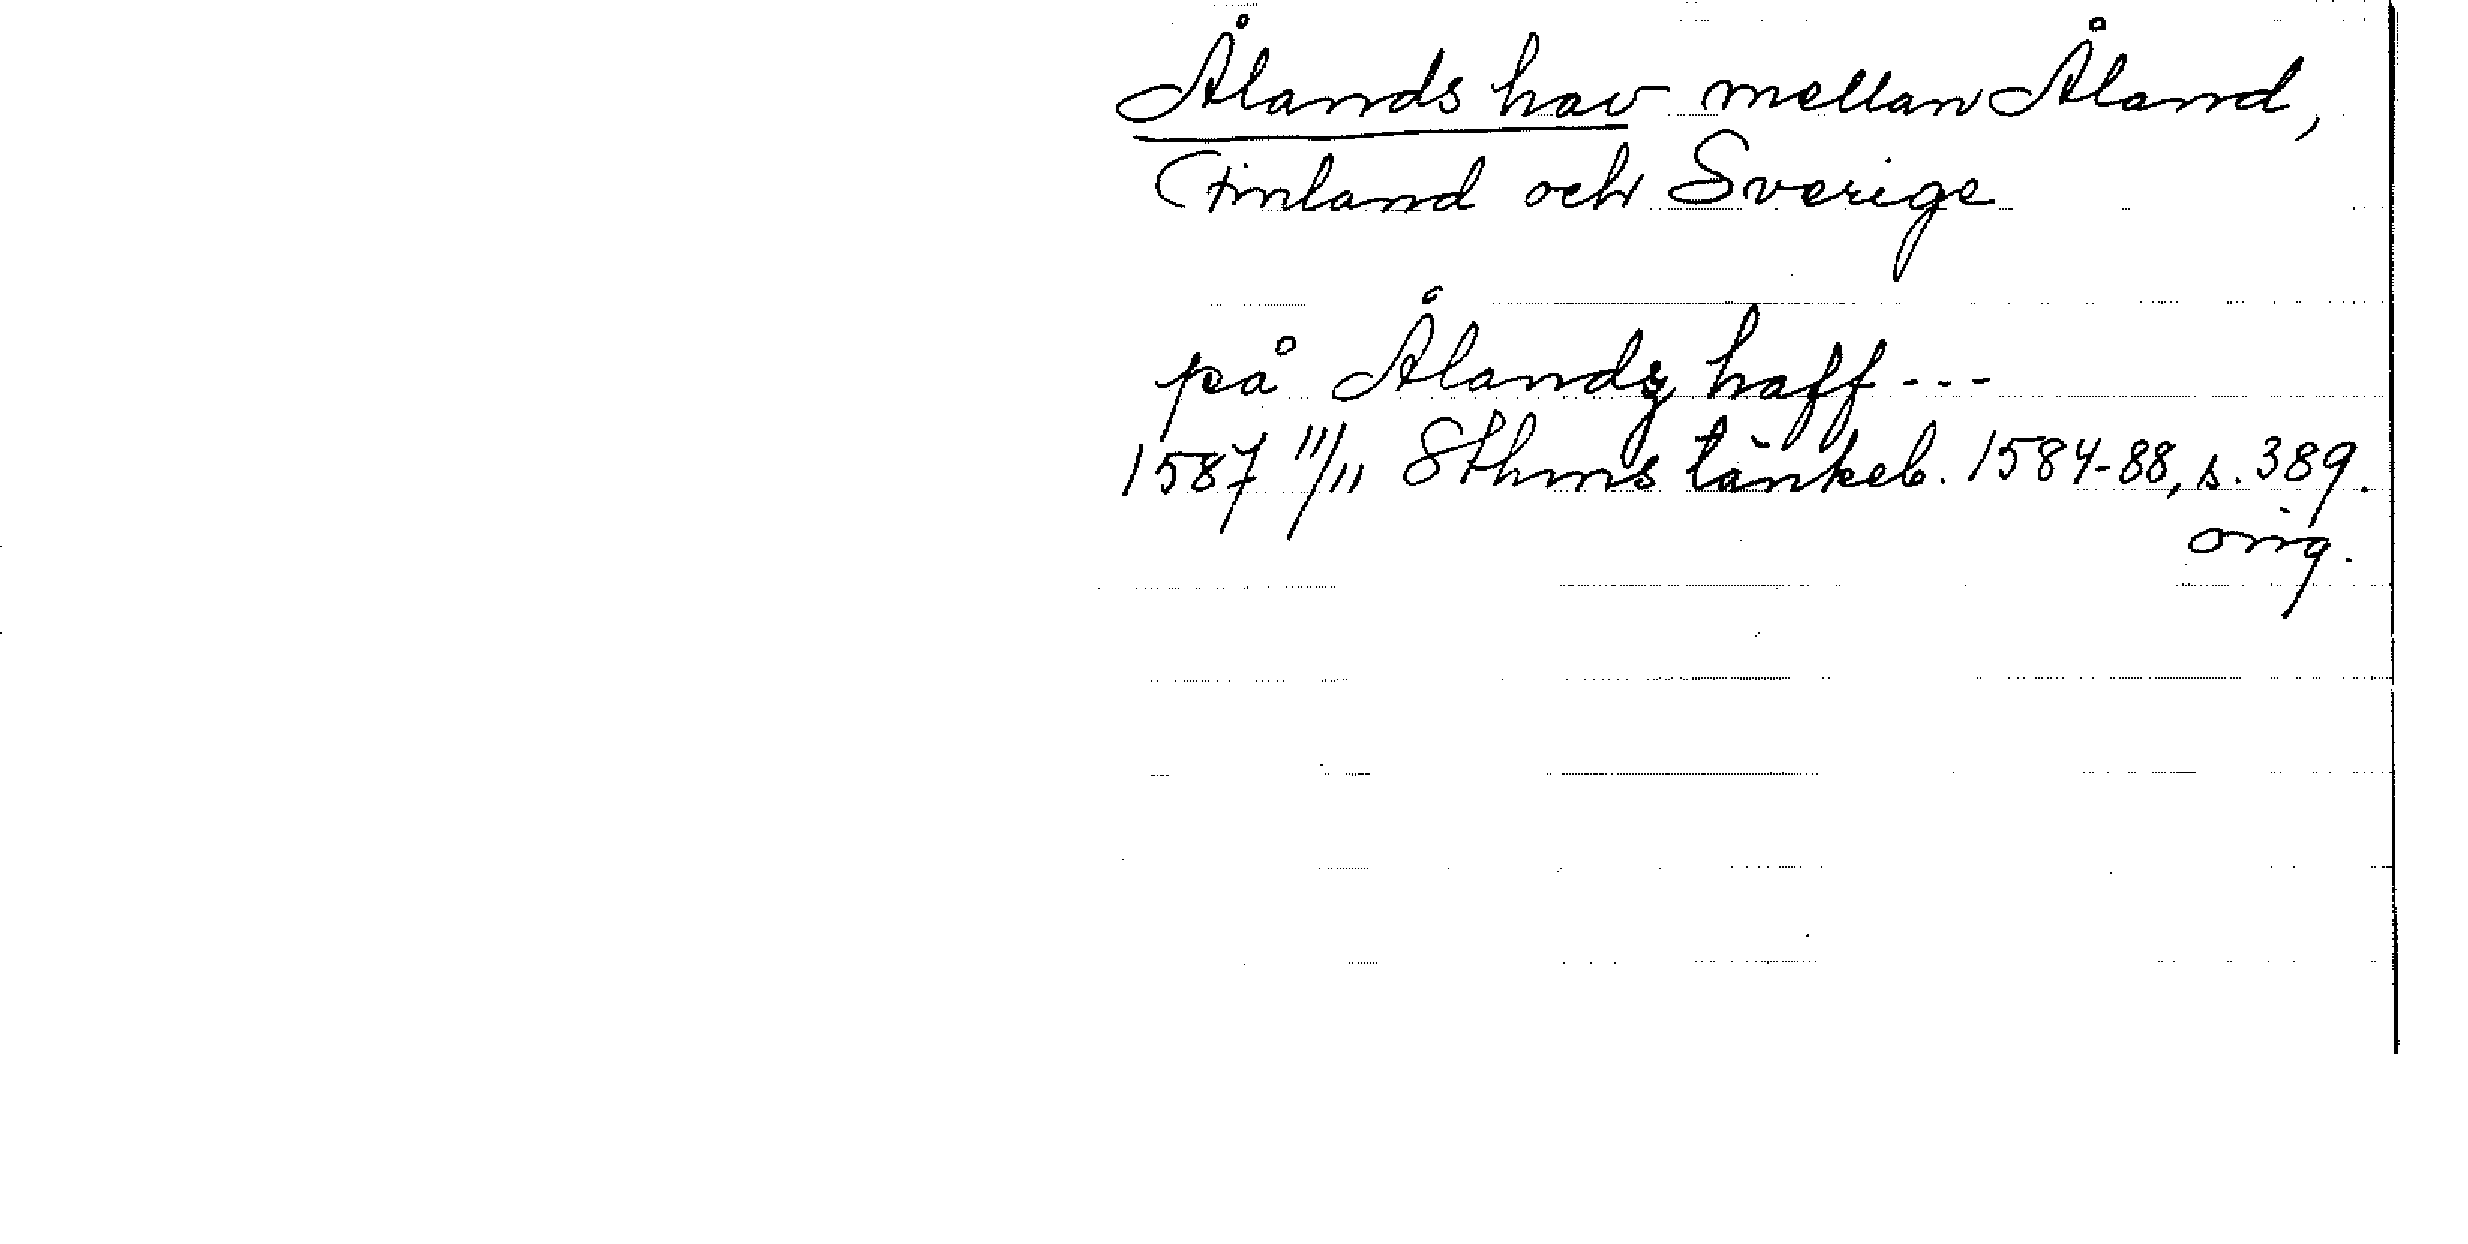 Ålands hav mellan Åland,
Finland och Sverige
på Ålandz haff ---
1587 11/11 Sthms tänkeb. 1584-88, s. 389.
orig.